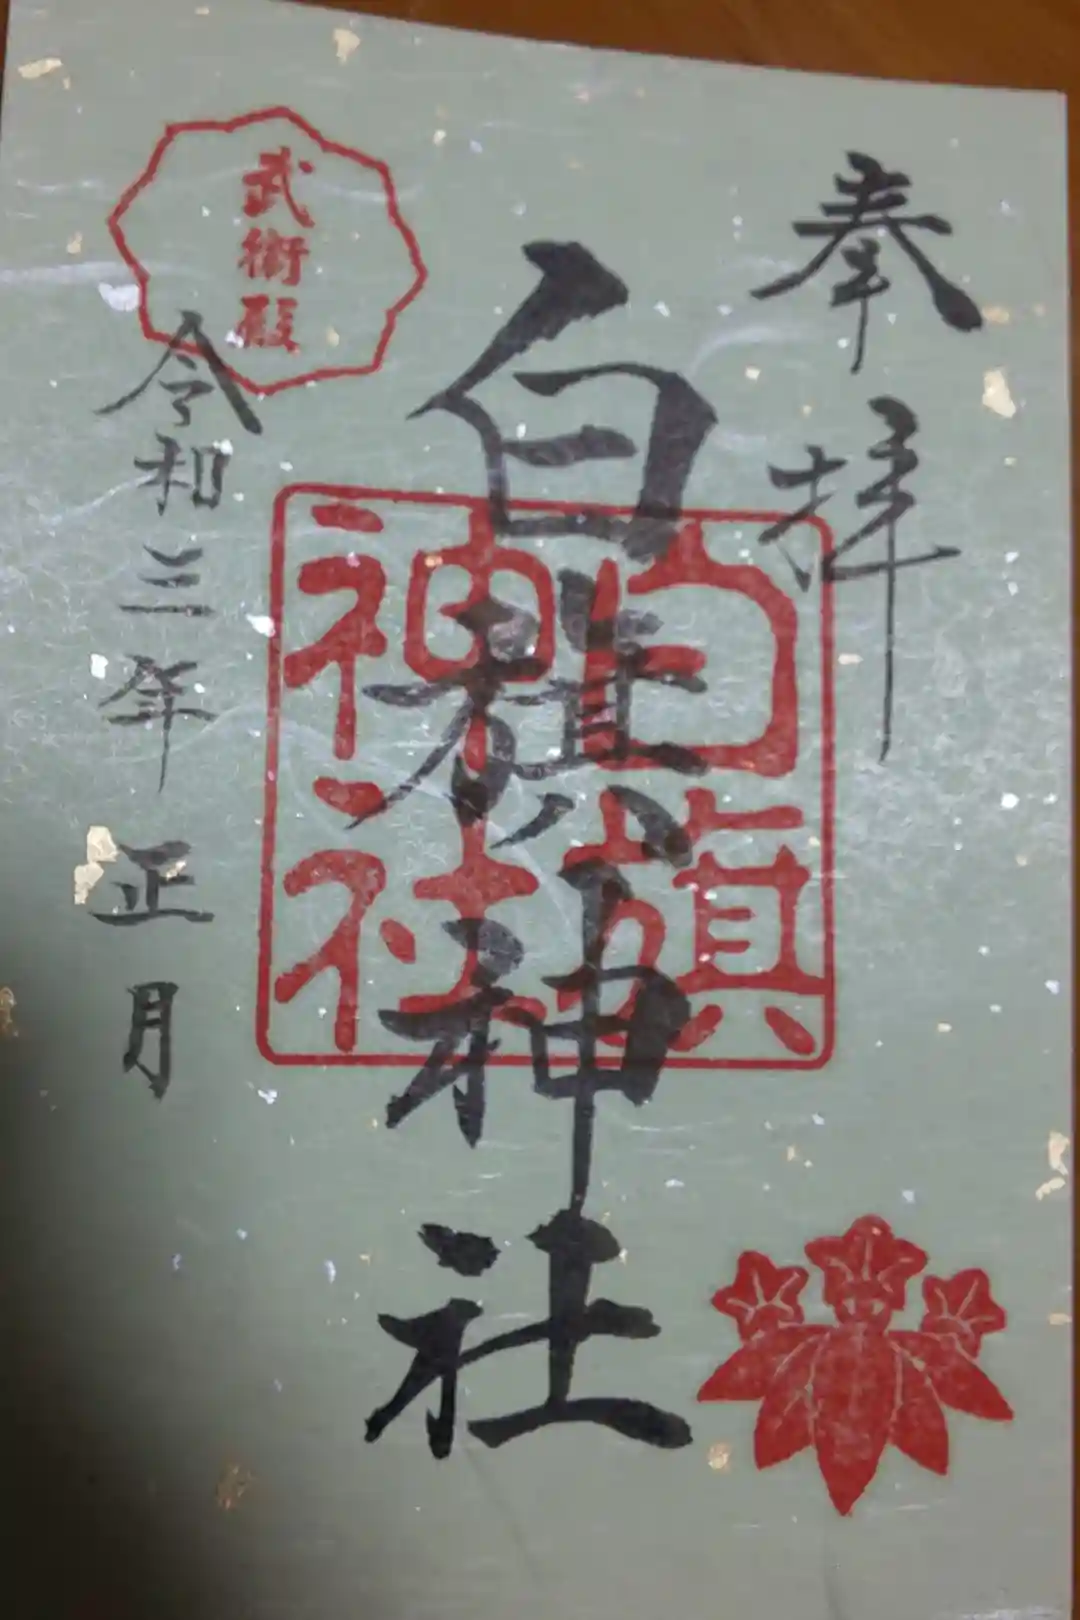 奉拝
白旗神社
白旗
神社
令和三年 正月
武衛殿